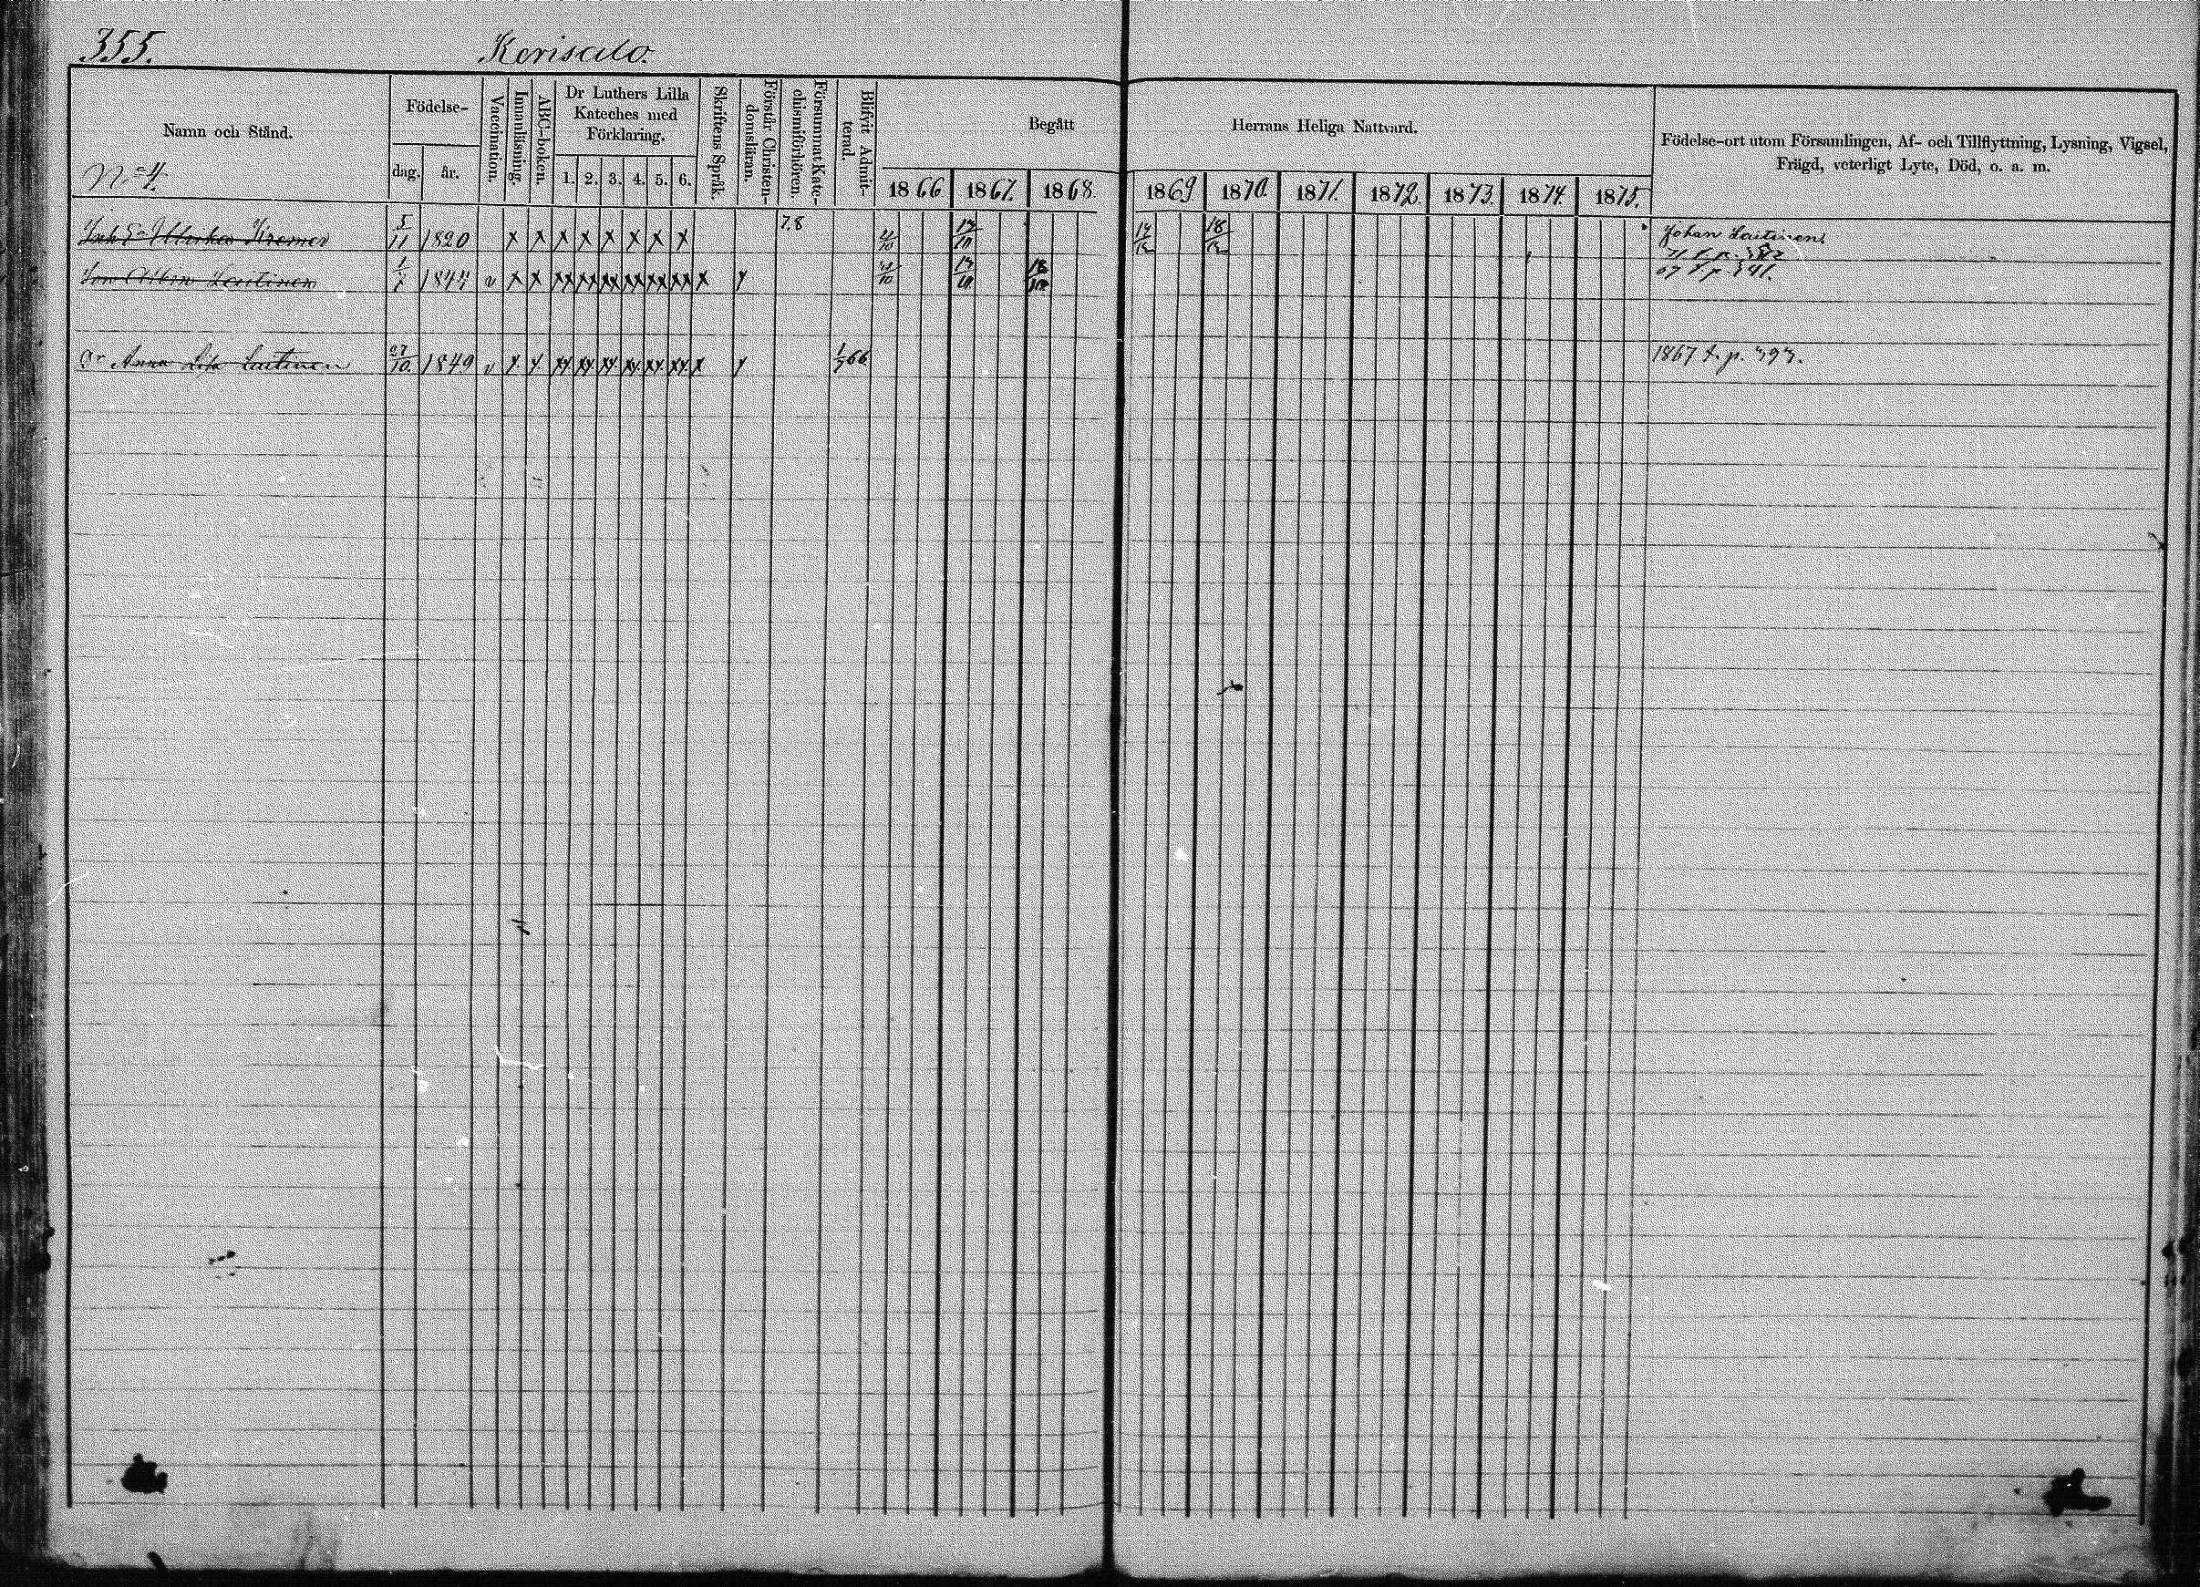 355.
Kerisalo.
Namn och Stånd.
N:o 4.
Födelse-
dag.
år.
Vaccination.
Innanläsning.
ABC-boken.
Dr Luthers Lilla
Kateches med
Förklaring.
1. 2. 3. 4. 5. 6.
Skriftens Språk.
Förstår Christen-
domsläran.
Försummat Kate-
chismiförhören.
Blifvit Admit-
terad.
Begått
Herrans Heliga Nattvard.
1866. 1867. 1868. 1869. 1870. 1871. 1872. 1873. 1874. 1875.
Födelse-ort utom Församlingen, Af- och Tillflyttning, Lysning, Vigsel,
Frägd, veterligt Lyte, Död, o. a. m.
5/11 1820 x x x x x x x x 7.8 17/10 18/12 Johan Laitinen
Laitinen v x x xx xx xx xx xx xx x y 17/10 18/10
Anna Lisa Laitinen 27/10 1849 v x x xx xx xx xx xx xx x y 1/7 66 1867 f. p. 393.